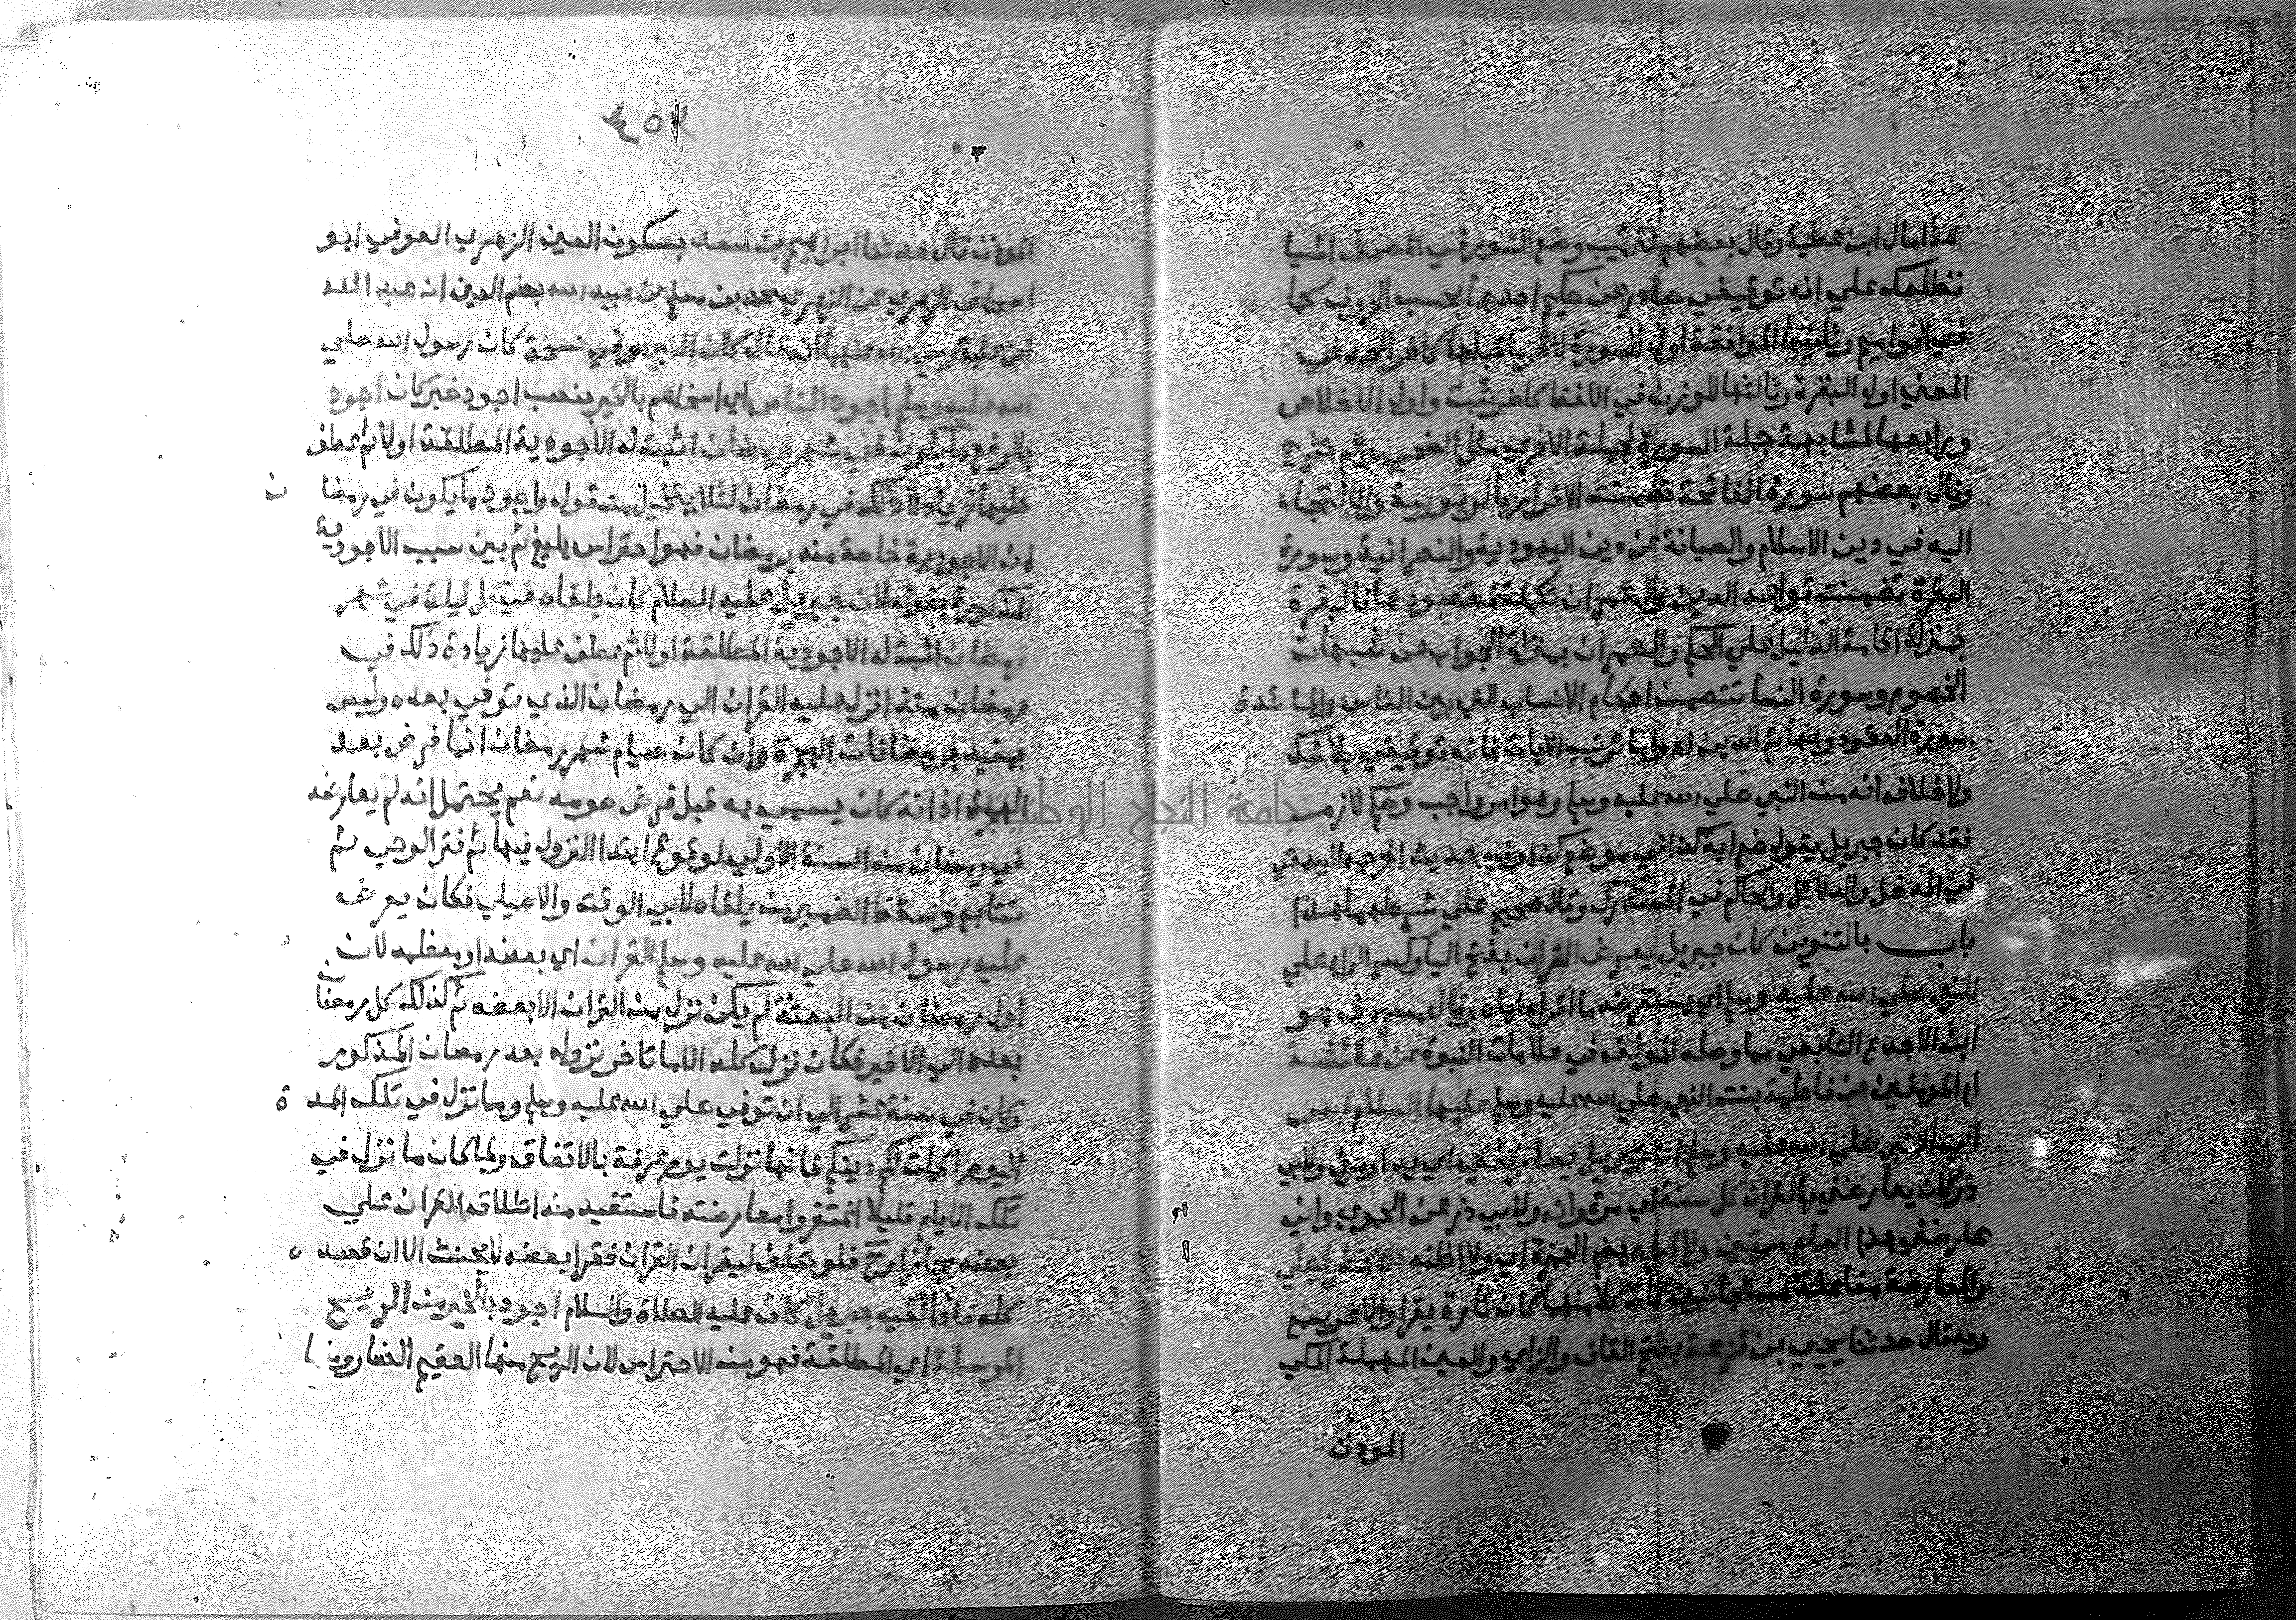 هذا مال ابن عطية وقال بعضهم لترتيب وضع السور في المصحف اشيا
تطلعك علي انه توقيفي صادر عن حكيم احدها بحسب الحروف كما
في الحواميم وثانيها لموافقة اول السورة لاخر ما قبلها كاخر الحمد في
المعني واول البقرة وثالثها للوزن في اللفظ كاخر تبت واول الاخلاص
ورابعها لمشابهة جملة السورة لجملة الاخري مثل الضحي والم نشرح
وقال بعضهم سورة الفاتحة تضمنت الاقرار بالربوبية والالتجاء
اليه في دين الاسلام والصيانة عن دين اليهودية والنصرانية وسورة
البقرة تضمنت قواعد الدين وال عمران مكملة لمقصودها فالبقرة
بمنزلة اقامة الدليل علي الحكم وال عمران بمنزلة الجواب عن شبهات
الخصوم وسورة النسا تتضمن احكام الانساب التي بين الناس والمائدة
سورة العقود وبها تم الدين اه واما ترتيب الايات فانه توقيفي بلا شك
ولا خلاف انه من النبي صلي الله عليه وسلم وهو امر واجب وحكم لازم
فقد كان جبريل يقول ضع اية كذا في موضع كذا وفيه حديث اخرجه البيهقي
في المدخل والدلائل والحاكم في المستدرك وقال صحيح علي شرطهما هذا
باب بالتنوين كان جبريل يعرض القران بفتح اليا وكسر الرا علي
النبي صلي الله عليه وسلم اي يستعرضه ما اقراه اياه وقال مسروق هو
ابن الاجدع التابعي مما وصله المولف في علامات النبوة عن عائشة
ام المومنين عن فاطمة بنت النبي صلي الله عليه وسلم عليها السلام اسر
الي النبي صلي الله عليه وسلم ان جبريل يعارضني اي يدارسني ولابي
ذر كان يعارضني بالقران كل سنة اي مرة وانه ولابي ذر عن الحموي واني
عارضني هذا العام مرتين ولا اراه بضم الهمزة اي ولا اظنه الا حضر اجلي
والمعارضة مفاعلة من الجانبين كان كلا منهما كان تارة يقرا والاخر يسمع
وبه قال حدثنا يحيي بن قزعة بفتح القاف والزاي والعين المهملة المكي
الموذن
٤٥٨
الموذن قال حدثنا ابراهيم بن سعد بسكون العين الزهري العوفي ابو
اسحاق الزهري عن الزهري محمد بن مسلم عن عبيد الله بضم العين ابن عبد الله
ابن عتبة رضي الله عنهما انه قال كان النبي وفي نسخة كان رسول الله صلي
الله عليه وسلم اجود الناس اي اسخاهم بالخير بنصب اجود خبر كان اجود
بالرفع ما يكون في شهر رمضان اثبت له الاجودية المطلقة اولا ثم عطف
عليها زيادة ذلك في رمضان لئلا يتخيل من قوله واجود ما يكون في رمضان
ان الاجودية خاصة منه برمضان فهو احتراس بليغ ثم بين سبب الاجودية
المذكورة بقوله لان جبريل عليه السلام كان يلقاه في كل ليلة في شهر
رمضان اثبت له الاجودية المطلقة اولا ثم عطف عليها زيادة ذلك في
رمضان منذ انزل عليه القران الي رمضان الذي توفي بعده وليس
بمقيد برمضانات الهجرة وان كان صيام شهر رمضان انما فرض بعد
الهجرة اذ انه كان يسمي به قبل فرض صومه نعم يحتمل انه لم يعارضه
في رمضان من السنة الاولي لوقوع ابتدا النزول فيها ثم فتر الوحي ثم
تتابع وسقط الضمير من يلقاه لابي الوقت والاصيلي فكان يعرض
عليه رسول الله صلي الله عليه وسلم القران اي بعضه او معظمه لان
اول رمضان من البعثة لم يكن نزل من القران الا بعضه ثم كذلك كل رمضان
بعده الي الاخير فكان نزل كله الا ما تاخر نزوله بعد رمضان المذكور
وكان في سنة عشر الي ان توفي صلي الله عليه وسلم ومما نزل في تلك المدة
اليوم اكملت لكم دينكم فانها نزلت يوم عرفة بالاتفاق ولما كان ما نزل في
تلك الايام قليلا اغتفروا معارضته فاستفيد منه اطلاق القران علي
بعضه مجازا وح فلو حلف ليقران القران فقرا بعضه لا يحنث الا ان قصد
كله فاذا لقيه جبريل كان عليه الصلاة والسلام اجود بالخير من الريح
المرسلة اي المطلقة فهو من الاحتراس لان الريح منها العقيم الضار ومنها
جامعة النجاح الوطنية